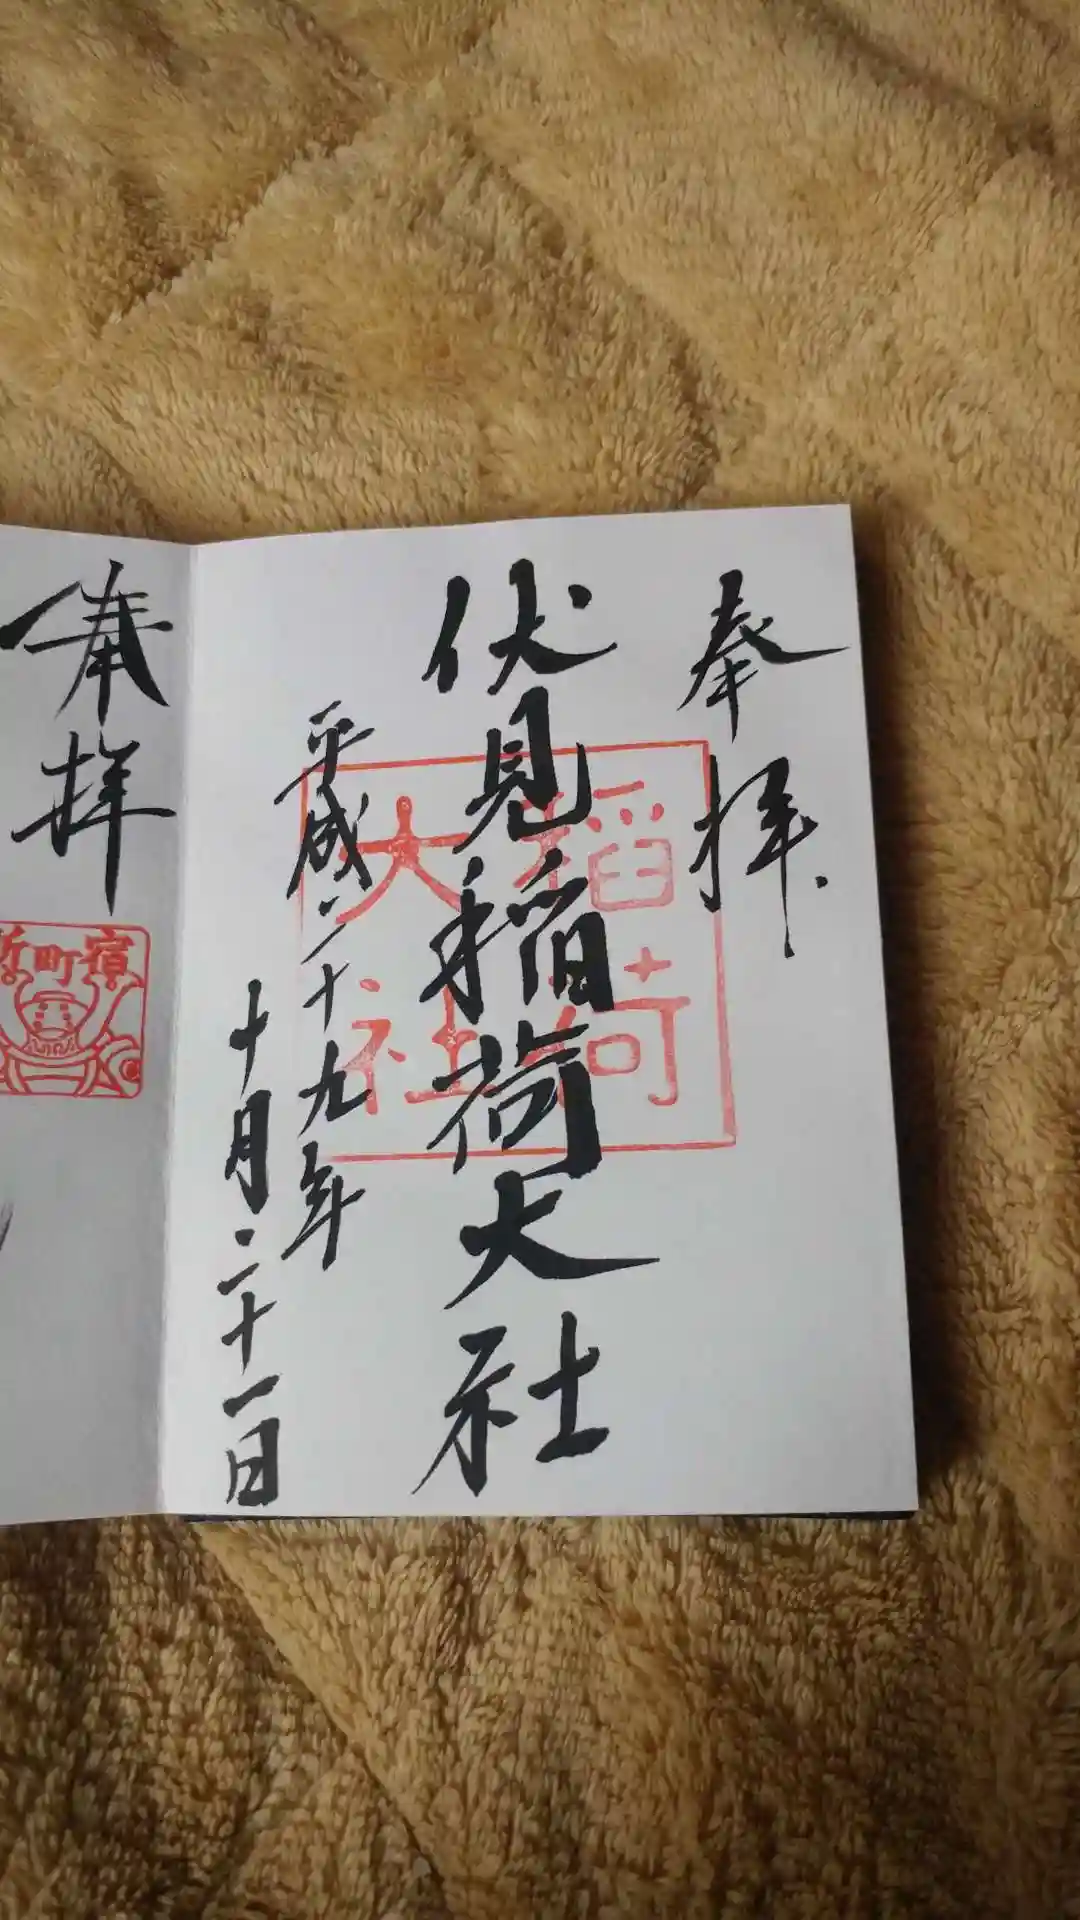 奉拝
伏見稲荷大社
稲荷
大社
平成二十九年
十月二十一日
奉拝
町宿